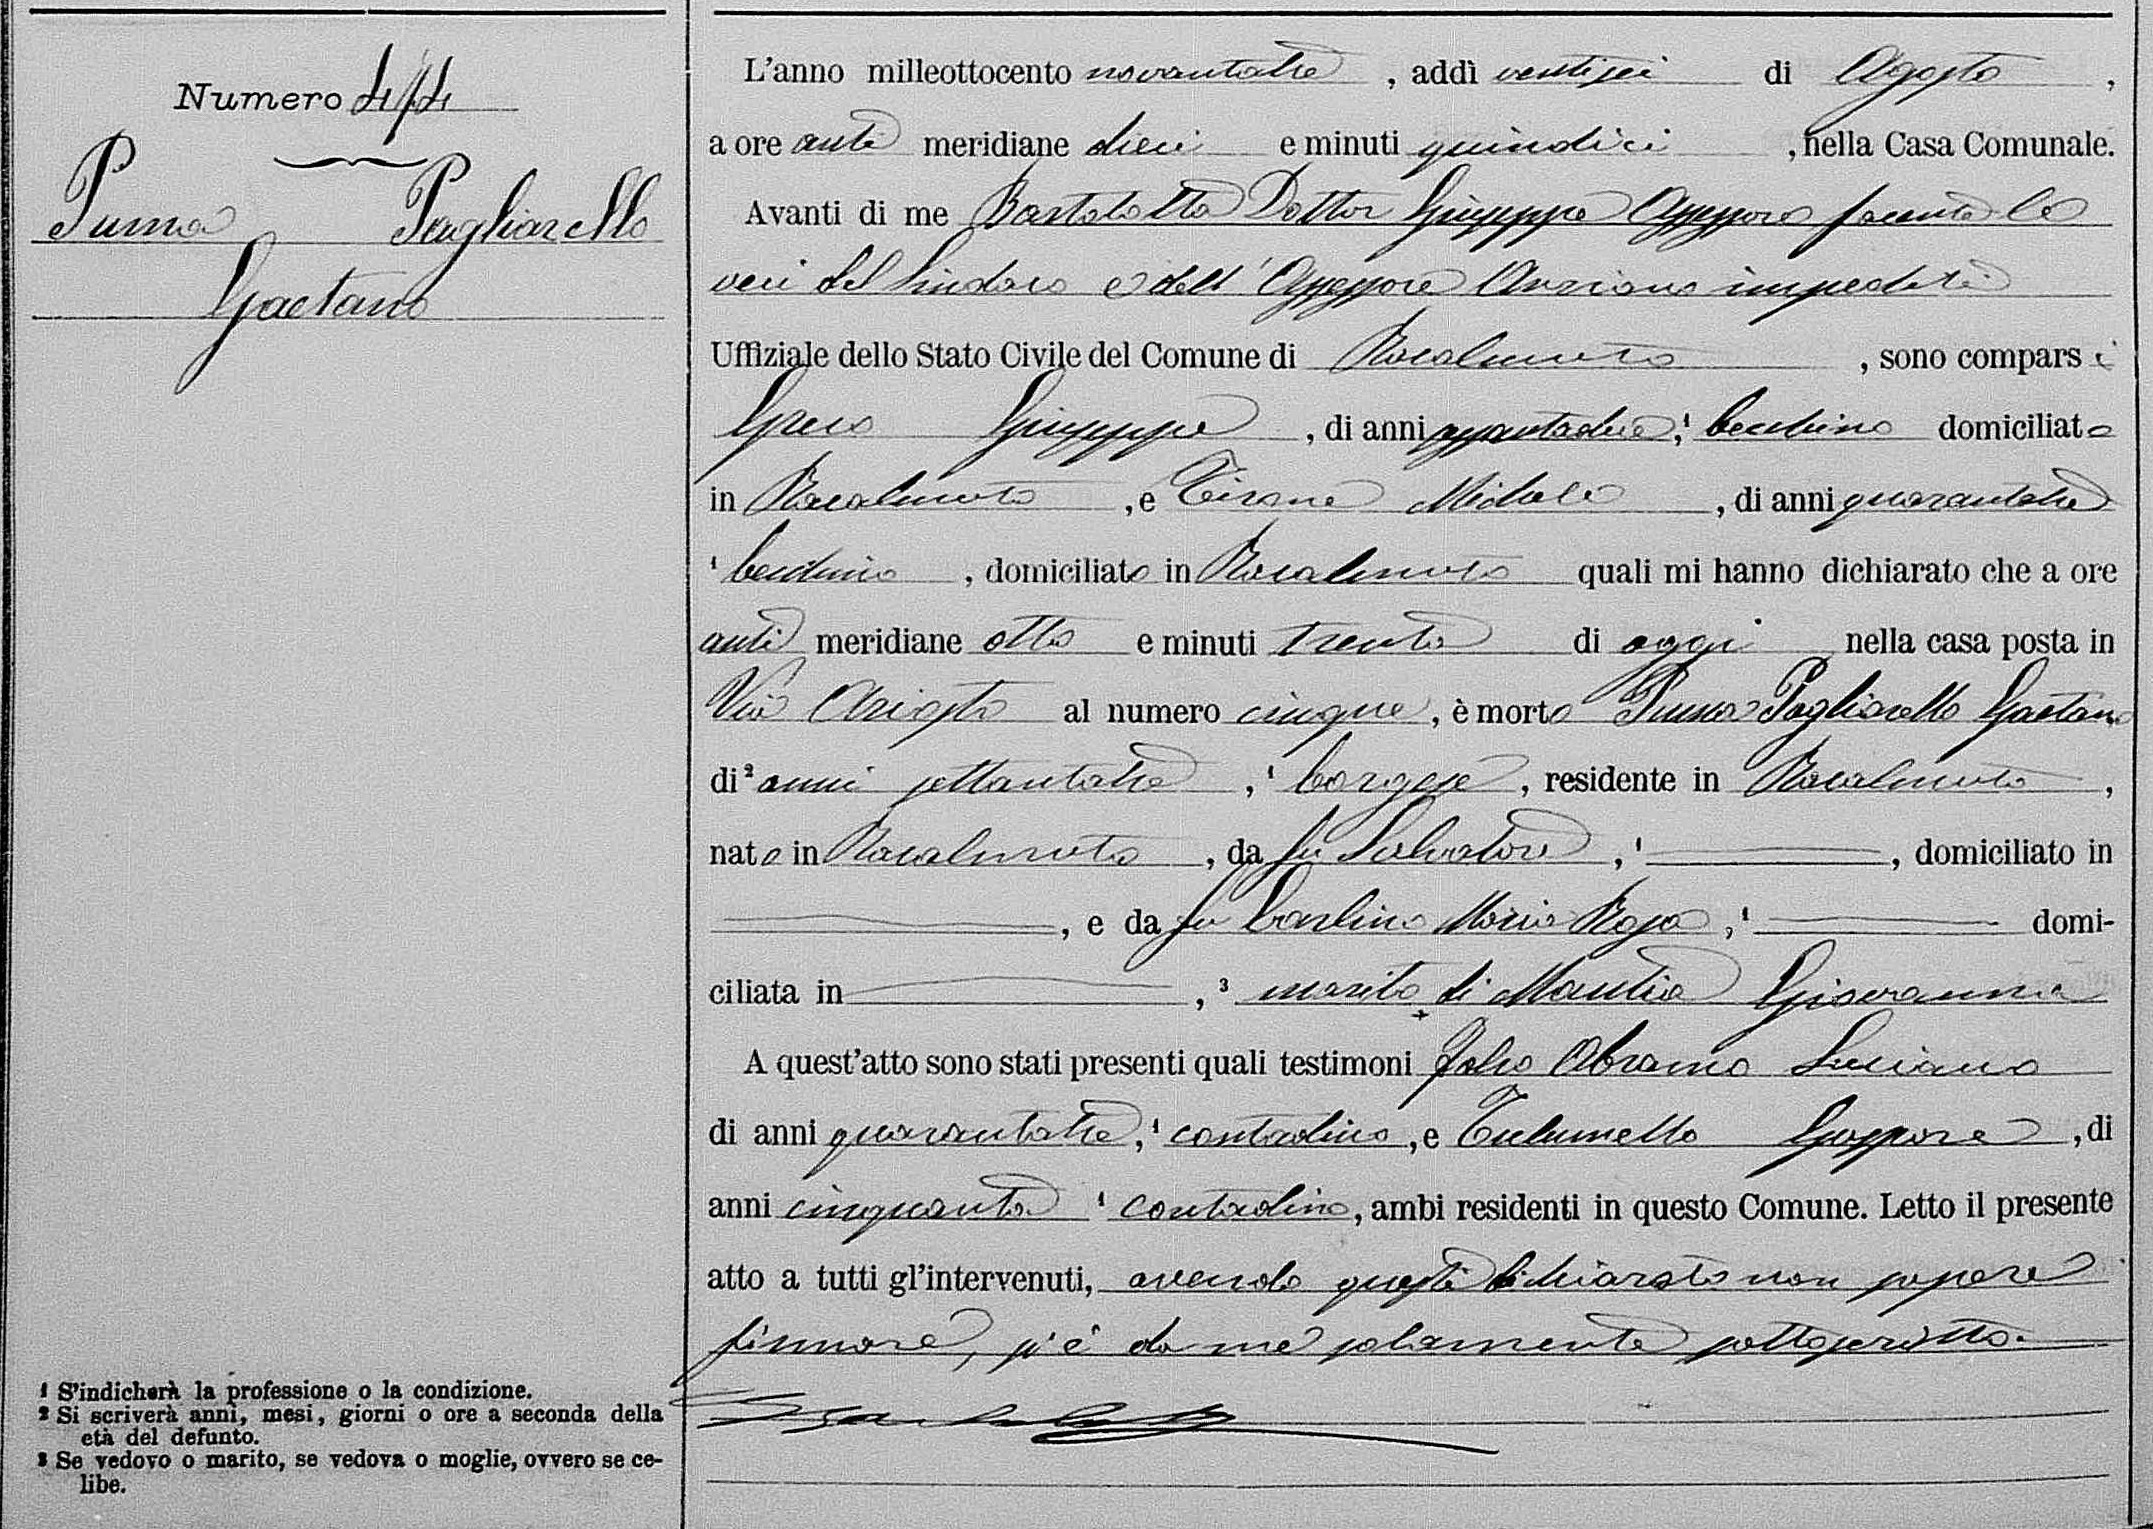 Numero 474
Puma Pagliarello
Gaetano
L'anno milleottocento novantatre, addì ventisei di Agosto,
a ore anti meridiane dieci e minuti quindici, nella Casa Comunale.
Avanti di me Bartolotta Dottor Giuseppe Assessore facente le
veci del Sindaco e dell'Assessore Anziano impediti
Uffiziale dello Stato Civile del Comune di Racalmuto, sono comparsi
Greco Giuseppe, di anni ¹ becchino domiciliato
in Racalmuto, e Tirone Michele, di anni quarantatre
¹ becchino, domiciliato in Racalmuto quali mi hanno dichiarato che a ore
anti meridiane otto e minuti trenta di oggi nella casa posta in
Via Ariosto al numero cinque, è morto Puma Pagliarello Gaetano
di ² anni settantatre, ¹ borgese, residente in Racalmuto,
nato in Racalmuto, da fu Salvatore, ¹ , domiciliato in
, e da fu Maria Rosa, ¹ domi-
ciliata in , ³ marito di Mantia Giovanna
A quest'atto sono stati presenti quali testimoni Abramo Luciano
di anni quarantatre, ¹ contadino, e Tulumello Gaspare, di
anni cinquanta ¹ contadino, ambi residenti in questo Comune. Letto il presente
atto a tutti gl'intervenuti, avendo questi dichiarato non sapere
firmare, si è da me solamente sottoscritto.
¹ S'indicherà la professione o la condizione.
² Si scriverà anni, mesi, giorni o ore a seconda della
età del defunto.
³ Se vedovo o marito, se vedova o moglie, ovvero se ce-
libe.